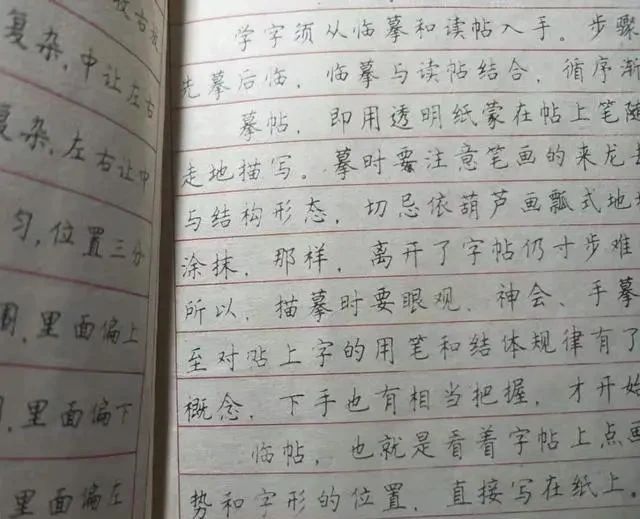 复杂,中让左右
复杂,左右让中
匀,位置三分
里面偏上
里面偏下
里面偏左
学字须从临摹和读帖入手。步骤
先摹后临,临摹与读帖结合,循序渐
摹帖,即用透明纸蒙在帖上笔随
走地描写。摹时要注意笔画的来龙
与结构形态,切忌依葫芦画瓢式地
涂抹,那样,离开了字帖仍寸步难
所以,描摹时要眼观、神会、手摹
至对贴上字的用笔和结体规律有了
概念,下手也有相当把握,才开始
临帖,也就是看着字帖上点画
势和字形的位置,直接写在纸上。